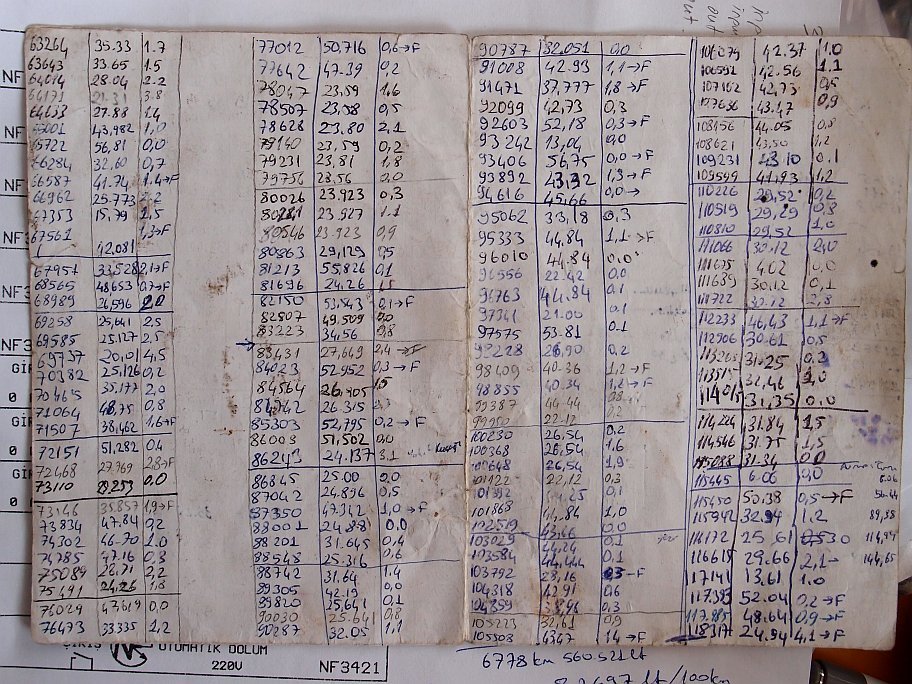 63264 35.33 1.7
63643 33.65 1.5
64014 28.04 2.2
64171 21.31 3.8
64633 27.88 1.4
43,982 1,0
65722 56,81 0,0
66284 32,60 0,7
66587 41.74 1.4→F
66962 25.773 2.2
67353 15,79 1,5
67561 42.081 1,3→F
67957 33,528 2,1→F
68565 48653 0,7→F
68989 26,596 2.0
69258 25,641 2,5
69585 25.127 2,5
69737 20,01 4,5
70382 25,126 0,2
70465 35.177 2,0
71064 48,75 0,8
71507 38,462 1,6→F
72151 51,282 0,4
72468 27,769 2,8→F
73110 29.253 0.0
73146 35.857 1,9→F
73834 47.84 0,2
74302 46.70 1.0
74785 47.16 0,3
75089 26.71 2,2
75491 24.26 1.8
76029 47,619 0,0
76473 33335 1,2
77012 50,716 0,6→F
77642 47.39 0,2
78047 23,59 1,6
78507 23,58 0,5
78628 23.80 2,1
79140 23,59 0,2
79231 23,81 1,8
79756 28,56 0,0
80026 23.923 0,3
80281 23.927 1.1
80546 23.923 0,9
80863 29,129 0,5
81213 55,826 0,1
81696 24.26 1,1
82150 53,543 0,1→F
82507 49,509 0,0
83223 34,56 0,8
→ 83431 27,649 2,4→F
84023 52,952 0,3→F
84564 26,905 1,5
84942 26.315 2,3
85303 52,795 0,2→F
86003 51,502 0,0
86243 24.137 3,1
86845 25.00 0,0
87042 24,896 0,5
87350 47.342 1,0→F
88001 24,88 0,0
88201 31,645 0,4
88548 25.316 0,6
88742 31,64 1.4
89305 42,19 0,0
89820 25,641 0,1
90030 25.641 0,8
90287 32.05 1,1
90787 32.051 0,0
91008 42.93 1,1→F
91471 37,777 1,8→F
92099 42,73 0.3
92603 52,18 0,3→F
93242 13,04 0,0
93406 56,75 0,0→F
93892 43,32 1,3→F
94616 45.66 0,0→
95062 33,18 0,3
95333 44,84 1,1→F
96010 44.84 0.0
96556 22.42 0,0
96763 44.84 0.1
97341 21.00 0.1
97575 53.81 0.1
98228 26,90 0,2
98409 40.36 1,2→F
98855 40.34 1,2→F
99387 44.44
99950 22.12 0,2
100230 26.54 0,2
100368 26.54 1,6
100648 26,54 1,9
101122 22,12 0,3
101392 34,25 0,1
101868 44,84 1,0
102519 43,66 0,0
103029 44,24 0,1
103584 44,444 0,1
103792 28,16 0,3→F
104318 42,91 0,6
104859 38,96 0,3
105223 32,61 0,9
105308 4367 1,4→F
106079 42.37 1.0
106592 42.56 1,1
107162 42,73 0,5
107636 43.17 0,9
108156 44.05 0,8
108621 43,50 1,2
109231 43.10 0.1
109599 41,93 1,2
110226 29,52 0,2
110519 29,29 0,8
110810 29,52 1,0
111066 30.12 2,0
111675 4.02 0,0
111689 30.12 0,1
111722 30.12 2,8
112233 46,43 1,1→F
112506 30.61 0,5
113265 31.25 0,2
113515 32,46 1,0
114015 31,35 0,0
114224 31.84 1,5
114546 31.75 1,5
115088 31.34 0,0
115465 6.06 0,0 6.06
115450 50.38 0,5→F 56.44
115942 32.94 1.2 89,38
116172 25.61 0 114,99
116615 29.66 2,1→ 144,65
117141 13.61 1.0
117.393 52.04 0,2→F
117.885 48.64 0,9→F
118317 24.94 4,1→F
6778 km 560.521 lt
lt/100km
OTOMATİK DOLUM
220V
NF3421